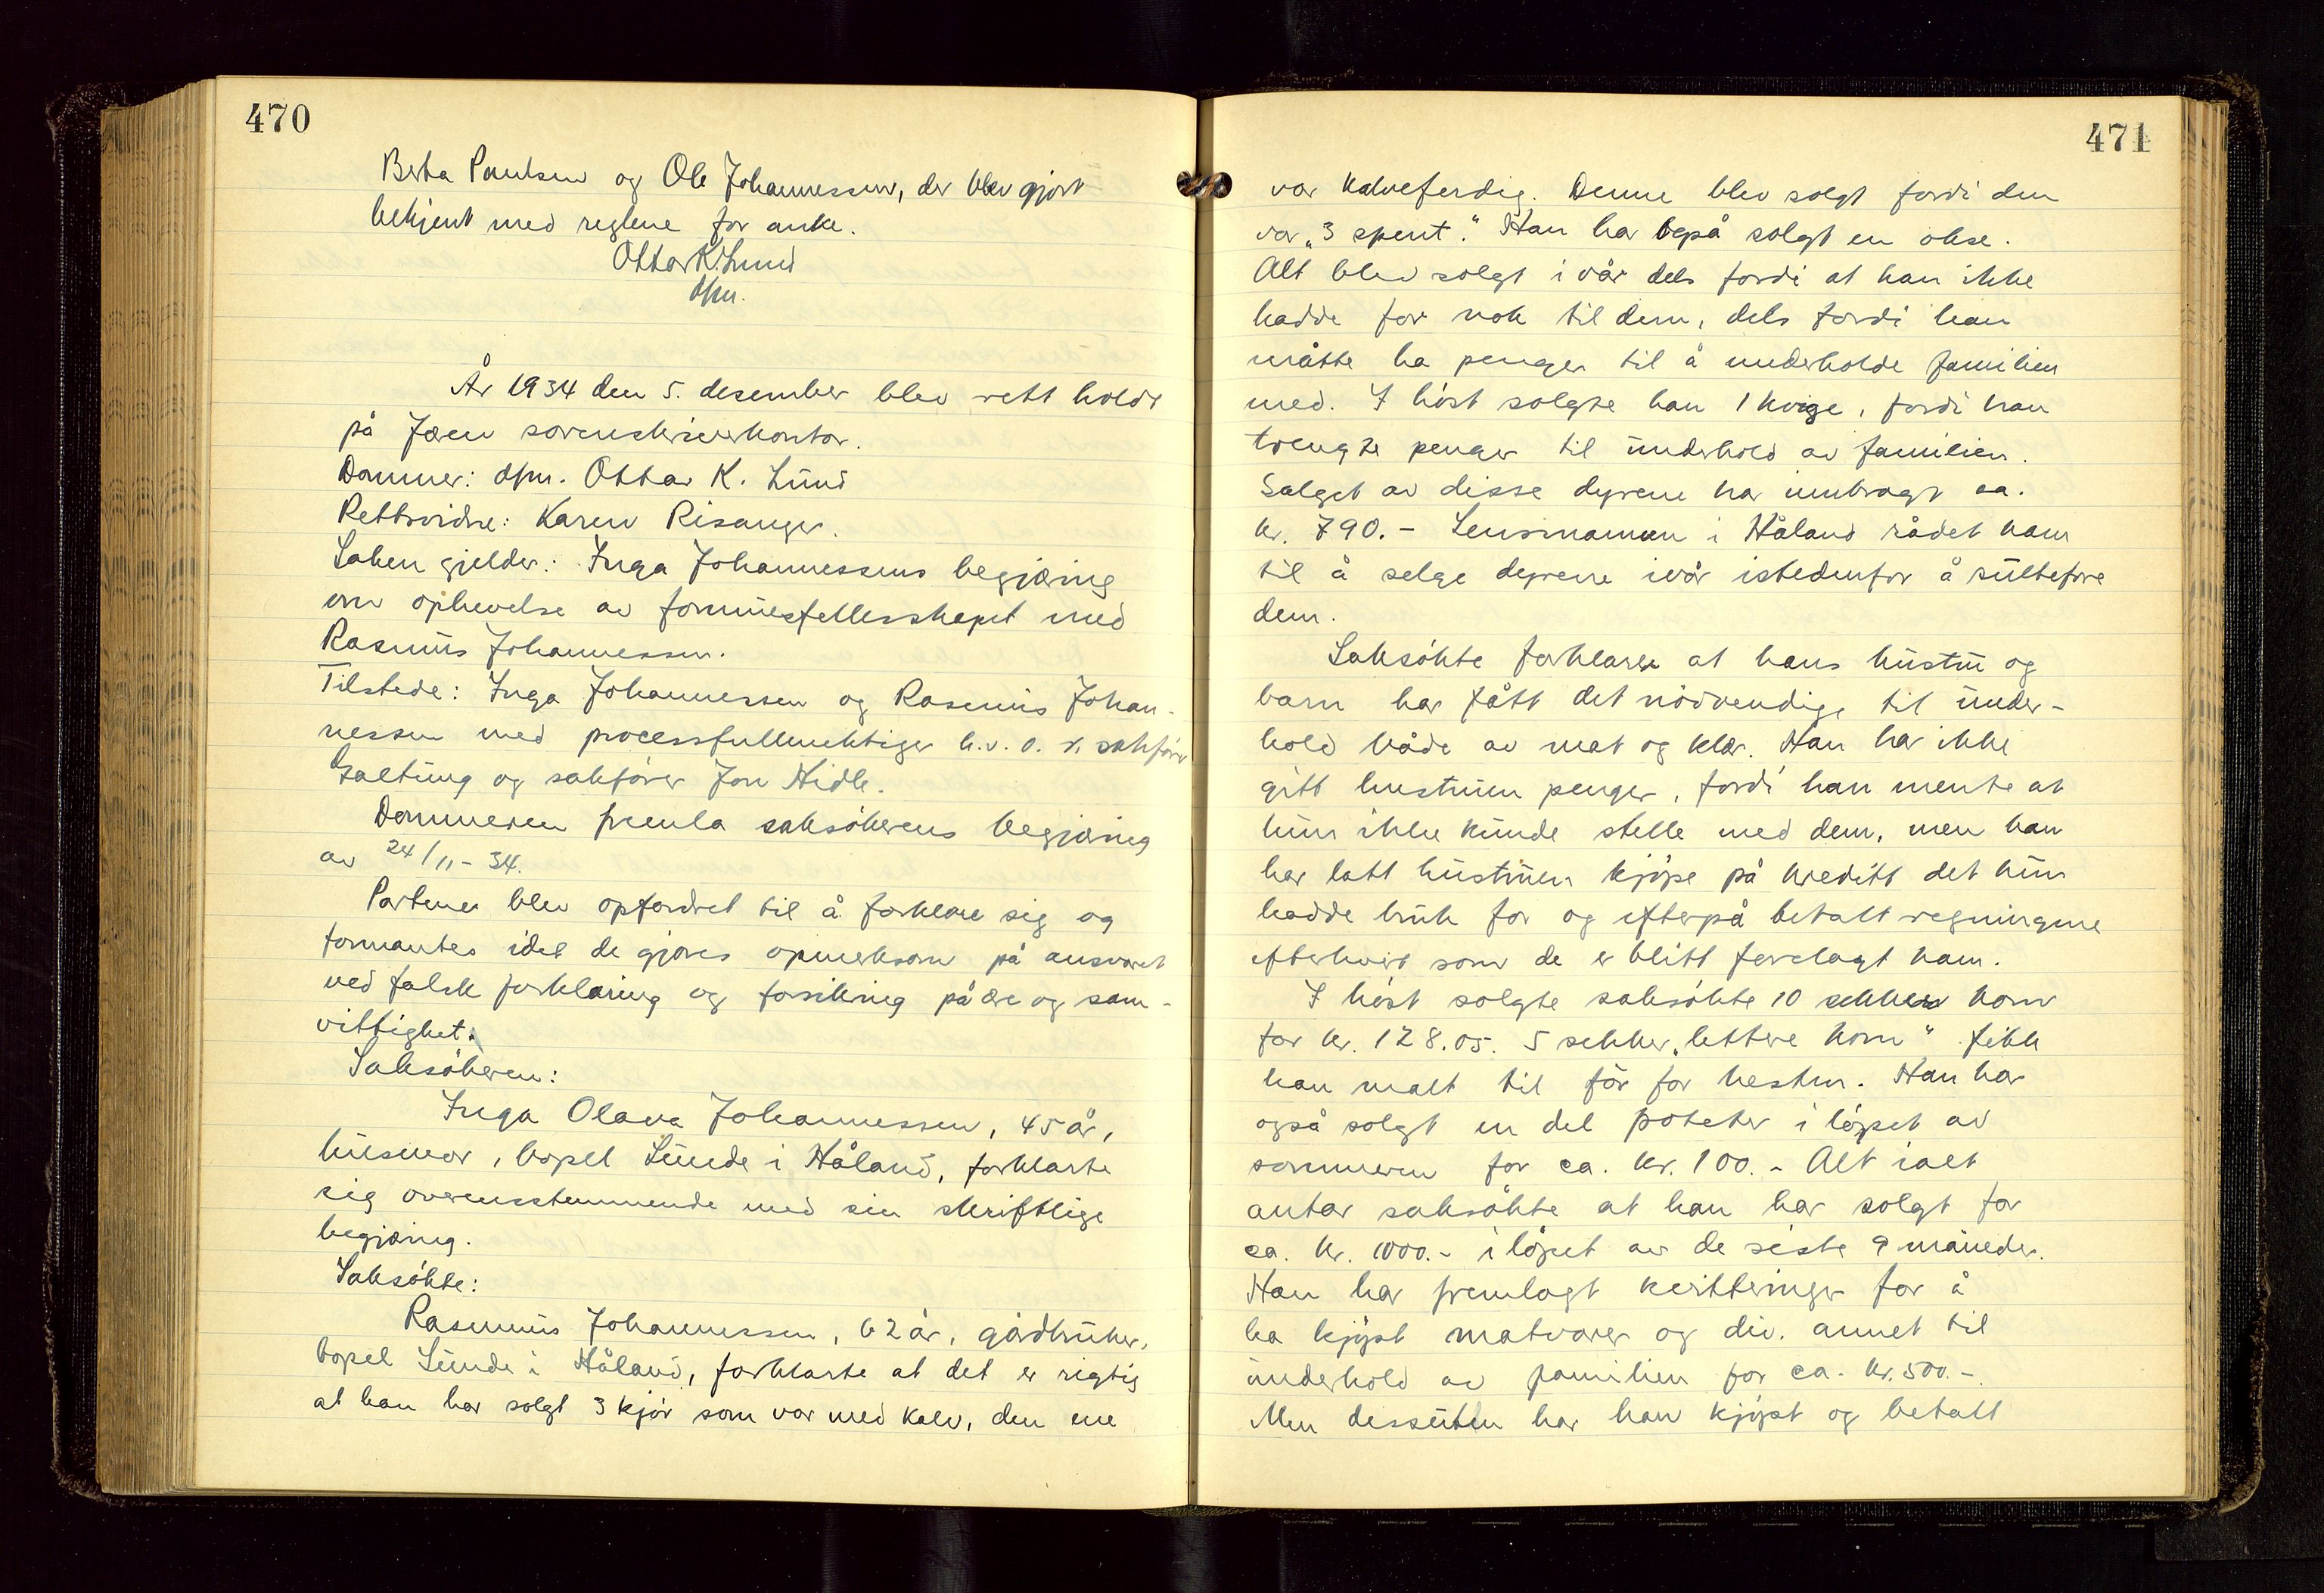 470
Berta Paulsen og Ole Johannessen, der blev gjort
bekjent med reglene for anke.
Ottar K. Lund
dfm.
År 1934 den 5. desember blev rett holdt
på Jæren sorenskriverkontor.
Dommer: dfm. Ottar K. Lund
Rettsvidne: Karen Risanger.
Saken gjelder: Inga Johannessens begjæring
om ophevelse av formuesfellesskapet med
Rasmus Johannessen.
Tilstede: Inga Johannessen og Rasmus Johan-
nessen med processfullmektiger h.v. o.r. sakfører
Galtung og sakfører Jon Hidle.
Dommeren fremla saksøkerens begjæring
av 24/11-34.
Partene blev opfordret til å forklare sig og
formantes idet de gjøres opmerksom på ansvaret
ved falsk forklaring og forsikring på ære og sam-
vittighet.
Saksøkeren:
Inga Olava Johannessen, 45 år,
husmor, bopel Lunde i Håland, forklarte
sig overensstemmende med sin skriftlige
begjæring.
Saksøkte:
Rasmus Johannessen, 62 år, gårdbruker,
bopel Lunde i Håland, forklarte at det er rigtig
at han har solgt 3 kjør som var med kalv, den ene
471
var kalveferdig. Denne blev solgt fordi den
var „3 spent". Han har også solgt en okse.
Alt blev solgt i vår dels fordi at han ikke
hadde for nok til dem, dels fordi han
måtte ha penger til å underholde familien
med. I høst solgte han 1 kvige, fordi han
trengte penger til underhold av familien.
Salget av disse dyrene har innbragt ca.
kr. 790.- Lensmannen i Håland rådet ham
til å selge dyrene ivår istedenfor å sultefore
dem.
Saksøkte forklarer at hans hustru og
barn har fått det nødvendige til under-
hold både av mat og klær. Han har ikke
gitt hustruen penger, fordi han mente at
hun ikke kunde stelle med dem, men han
har latt hustruen kjøpe på kreditt det hun
hadde bruk for og efterpå betalt regningene
efterhvert som de er blitt forelagt ham.
I høst solgte saksøkte 10 sekker korn
for kr. 128.05. 5 sekker „lettere korn" fikk
han malt til fór for hesten. Han har
også solgt en del poteter i løpet av
sommeren for ca. kr. 100.- Alt ialt
antar saksøkte at han har solgt for
ca. kr. 1000.- i løpet av de siste 9 måneder.
Han har fremlagt kvitteringer for å
ha kjøpt matvarer og div. annet til
underhold av familien for ca. kr. 500.-.
Men dessuten har han kjøpt og betalt